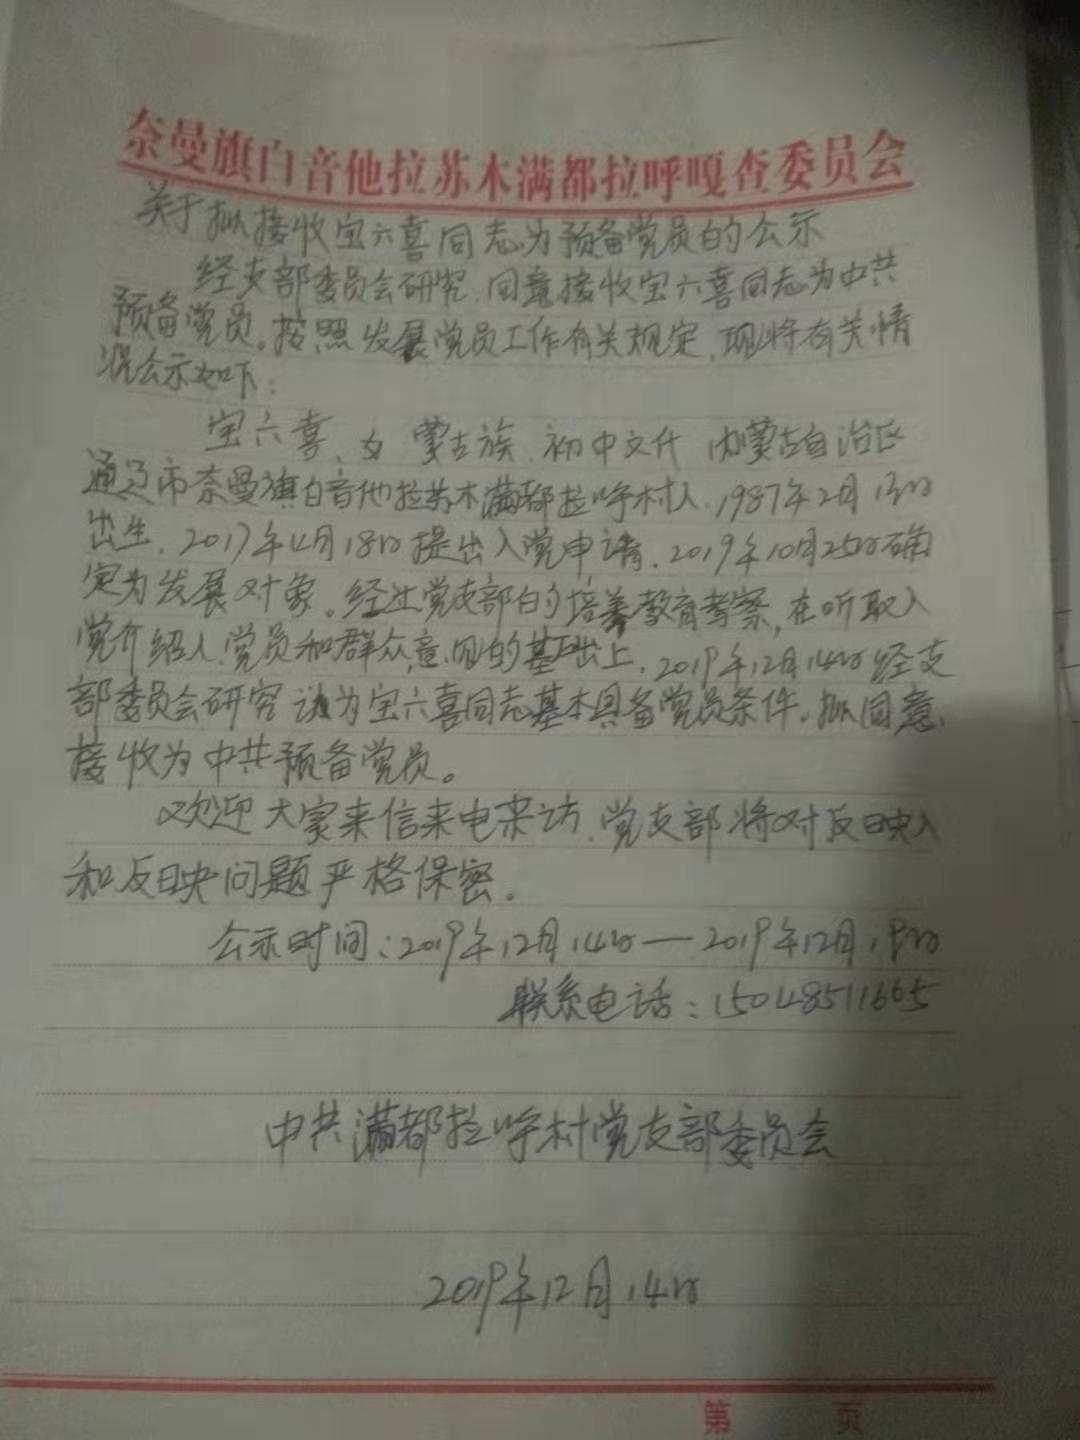 奈曼旗白音他拉苏木满都拉呼嘎查委员会
关于拟接收宝六喜同志为预备党员的公示
经支部委员会研究,同意接收宝六喜同志为中共
预备党员。按照发展党员工作有关规定,现将有关情
况公示如下:
宝六喜、女 蒙古族、初中文化 内蒙古自治区
通辽市奈曼旗白音他拉苏木满都拉呼村人,1987年2月
出生,2017年4月18日提出入党申请,2019年10月25日确
定为发展对象。经过党支部的培养教育考察,在听取入
党介绍人、党员和群众意见的基础上,2019年12月14日经支
部委员会研究认为宝六喜同志基本具备党员条件。拟同意
接收为中共预备党员。
欢迎大家来信来电来访,党支部将对反映人
和反映问题严格保密。
公示时间:2019年12月14日—2019年12月19日
联系电话:15048511665
中共满都拉呼村党支部委员会
2019年12月14日
第 页